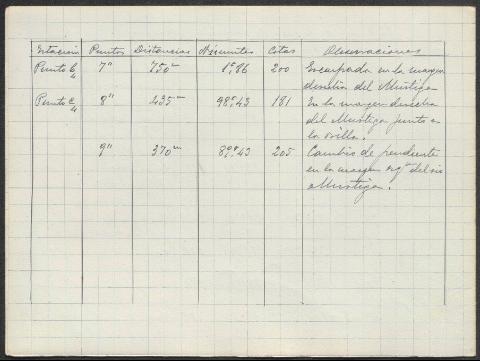 Estación Puntos Distancias Azimutes Cotas Observaciones
Punto 7" 750m 1º,86 200 Escarpada en la margen
derecha del Mustiga
Punto 8" 435m 98º,43 181 En la margen derecha
del Mustiga junto a
la orilla.
9" 370m 89º,43 205 Cambio de pendiente
en la margen izqª del río
Mustiga.